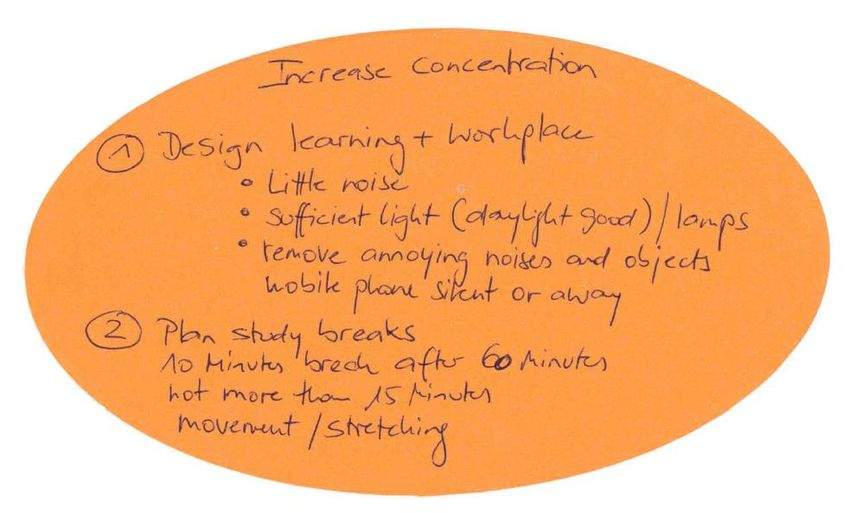 Increase Concentration
① Design learning + workplace
• Little noise
• sufficient light (daylight good) / lamps
• remove annoying noises and objects
mobile phone silent or away
② Plan study breaks
10 Minutes break after 60 Minutes
not more than 15 Minutes
movement / stretching